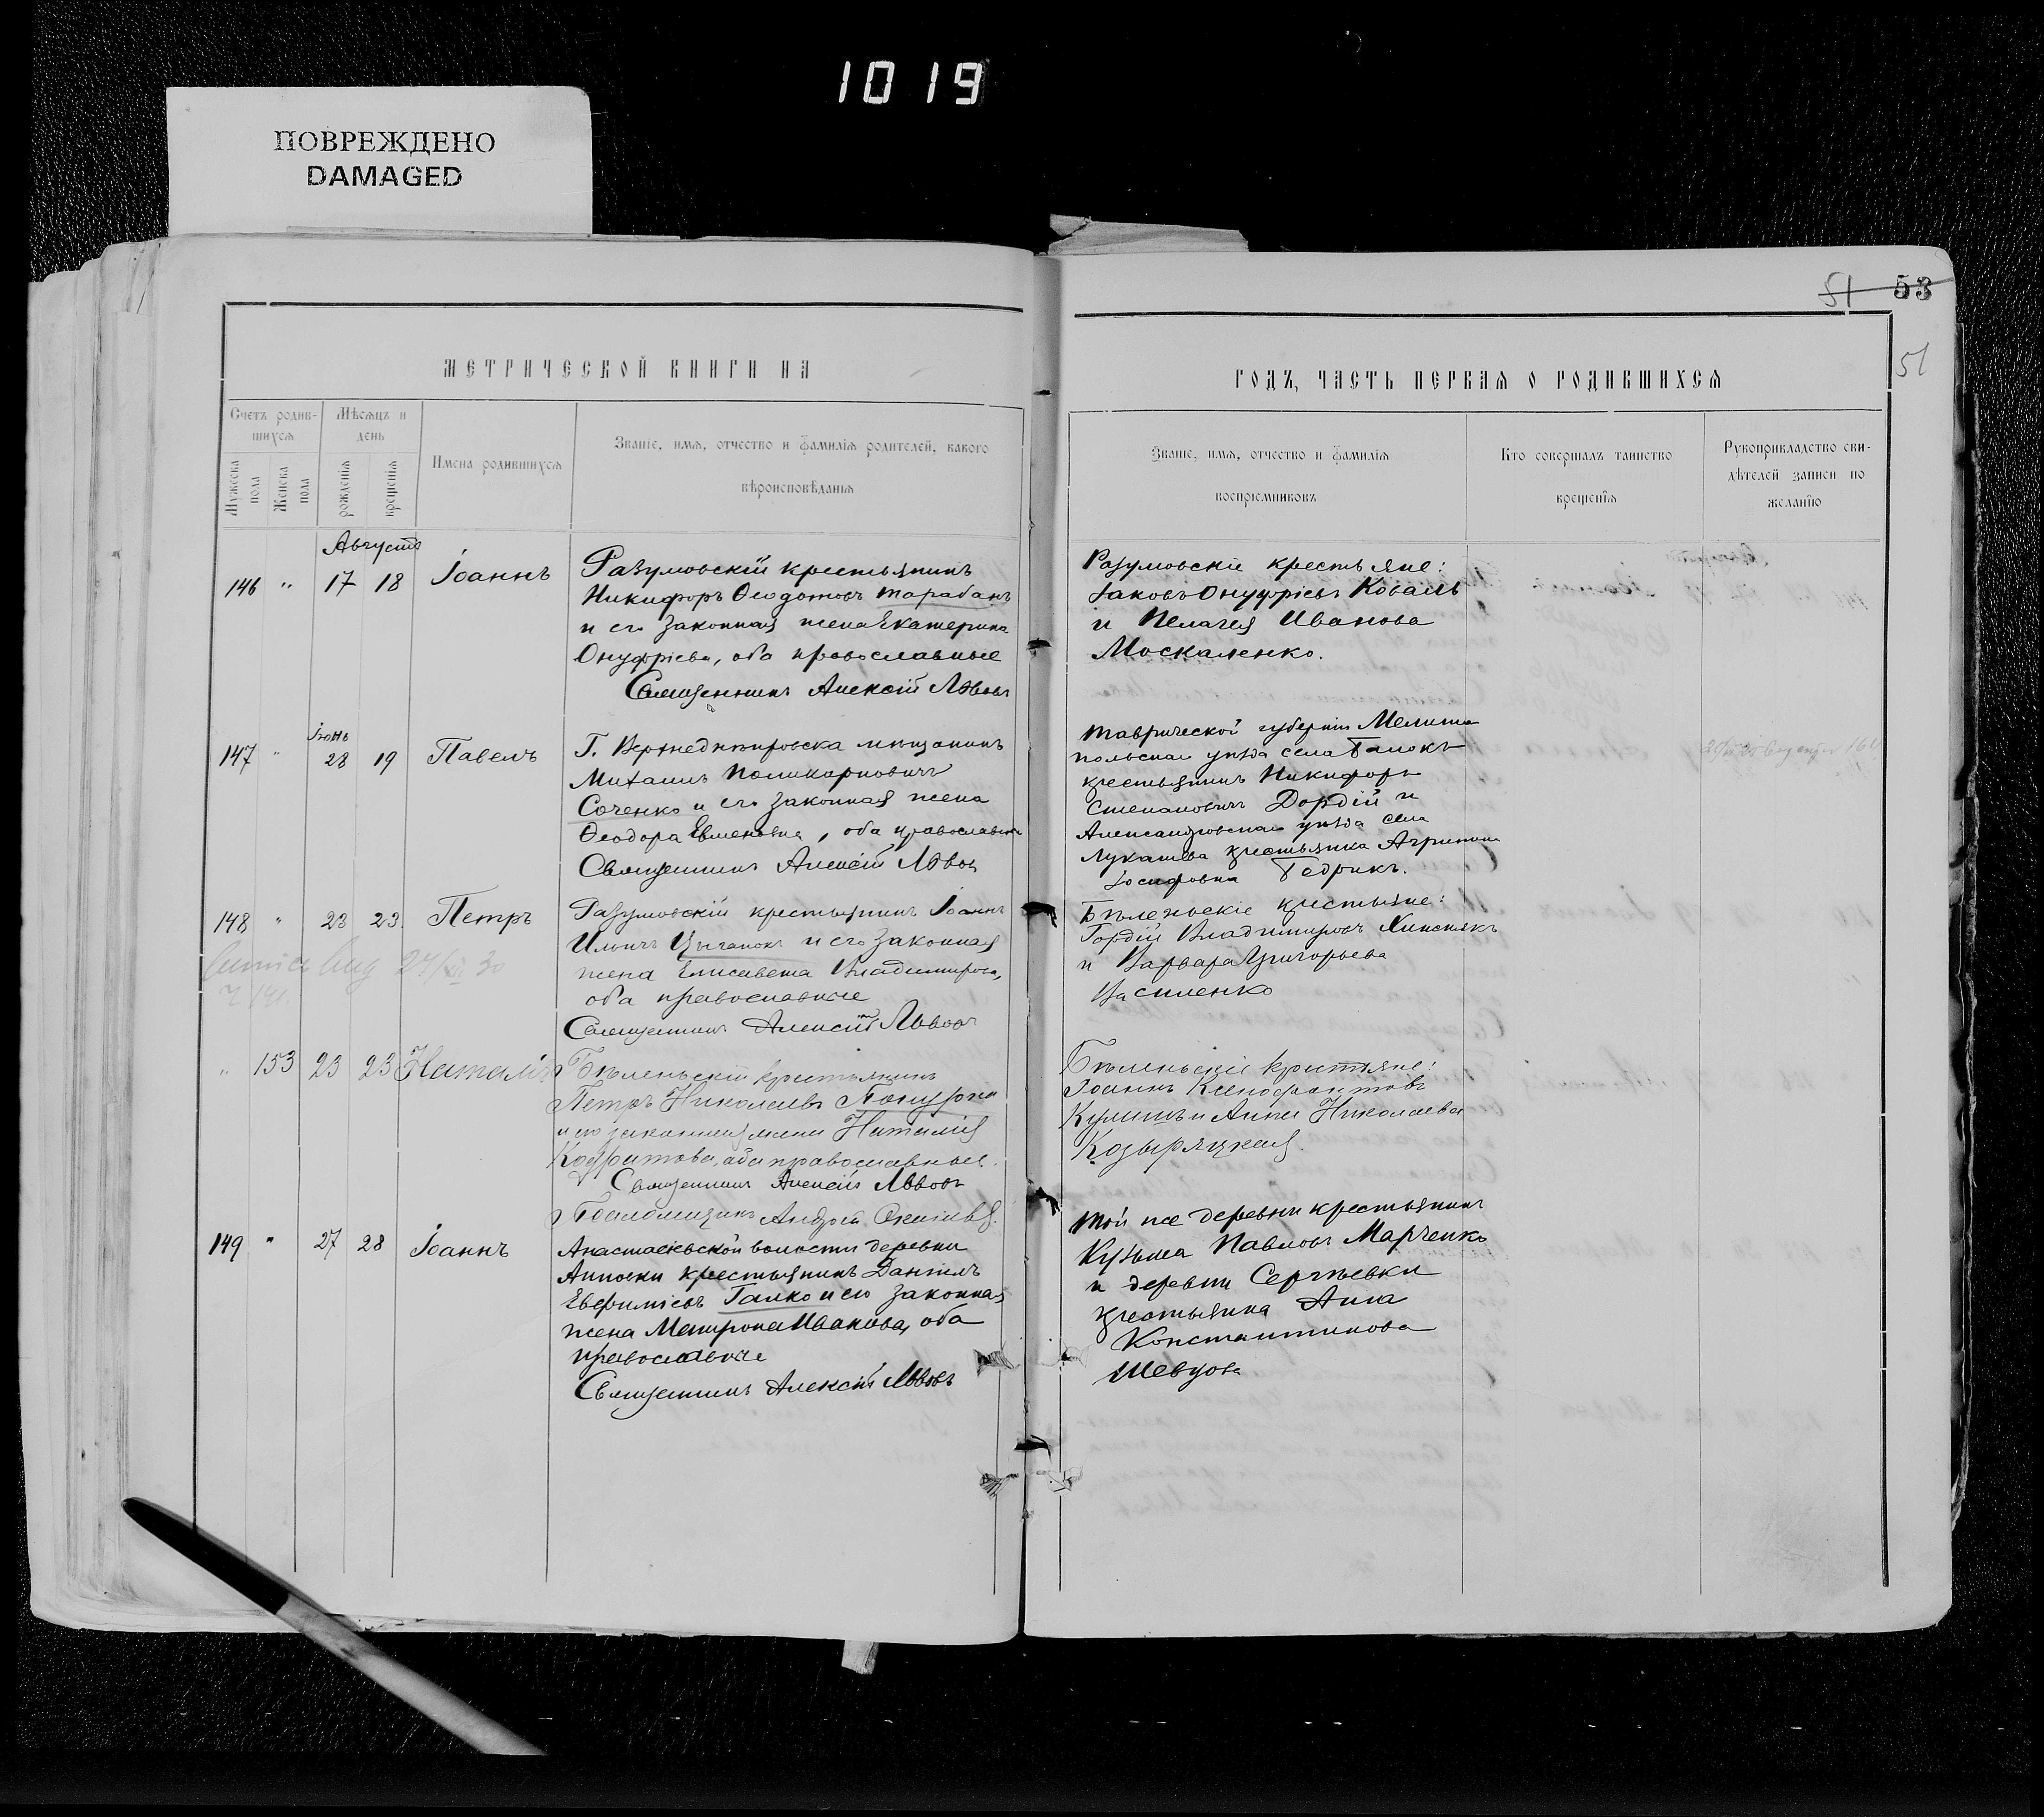 1019
ПОВРЕЖДЕНО
DAMAGED
51 53
51
МЕТРИЧЕСКОЙ КНИГИ НА
ГОДЪ, ЧАСТЬ ПЕРВАЯ О РОДИВШИХСЯ
Счетъ родив-
шихся
Мужеска пола
Женска пола
Мѣсяцъ и
день
рожденія
крещенія
Имена родившихся
Званіе, имя, отчество и фамилія родителей, какого
вѣроисповѣданія
Званіе, имя, отчество и фамилія
воспріемниковъ
Кто совершалъ таинство
крещенія
Рукоприкладство сви-
дѣтелей записи по
желанію
Августъ
146 " 17 18 Іоаннъ
Разумовскій крестьянинъ
Никифоръ Ѳеодотовъ Тарабанъ
и его законная жена Екатерина
Онуфріева, оба православные
Священникъ Алексій Львовъ
Разумовскіе крестьяне:
Іаковъ Онуфріевъ Коваль
и Пелагея Иванова
Москаленко.
Іюнь
147 " 28 19 Павелъ
Г. Верхнеднѣпровска мѣщанинъ
Михаилъ Поликарповичъ
Соченко и его законная жена
Ѳеодора Евменовна, оба православные
Священникъ Алексій Львовъ
Таврической губерніи Мелито
польскаго уѣзда села Балокъ
крестьянинъ Никифоръ
Степановичъ Дордій и
Александровскаго уѣзда села
Лукашева крестьянка Агрипина
Іосифовна Бедрикъ.
148 " 23 23 Петръ
Разумовскій крестьянинъ Іоаннъ
Ильичъ Цыганокъ и его законная
жена Елисавета Владимирова,
оба православные
Священникъ Алексій Львовъ
Бѣленьскіе крестьяне:
Гордій Владимировъ
и Варвара Григорьева
Василенко
" 153 23 23 Наталія
Бѣленьскій крестьянинъ
Петръ Николаевъ
и его законная жена Наталія
Кодратова, оба православные.
Священникъ Алексій Львовъ
Псаломщикъ Андрей
Бѣленьскіе крестьяне:
Іоаннъ Ксенофонтовъ
Кулишъ и Анна Николаева
Козыряцкая.
149 " 27 28 Іоаннъ
Анастасіевской волости деревни
Анновки крестьянинъ Даніилъ
Евфиміевъ Галко и его законная
жена Матрона Иванова, оба
православные
Священникъ Алексій Львовъ
Той же деревни крестьянинъ
Кузьма Павловъ Марченко
и деревни Сергѣевки
крестьянка Анна
Константинова
Шевцова